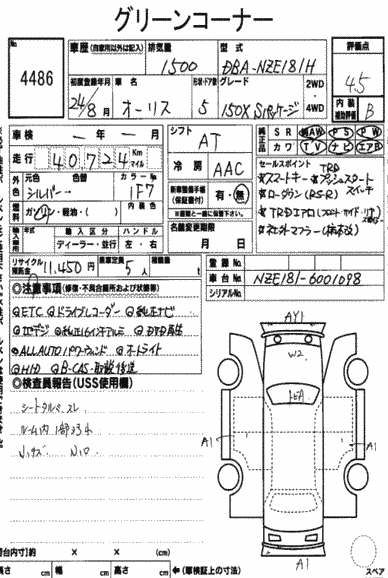 グリーンコーナー
No.
4486
車歴 (自家用以外は記入)
排気量
1500
型式
DBA-NZE181H
評価点
4.5
初度登録年月
24/8月
車名
オーリス
形状・ドア数
5
グレード
150X Sパッケージ
2WD
4WD
内装
補助評価
B
車検 年 月
シフト
AT
純正品
SR 純AW PS PW
カワ TV ナビ エアB
走行 40724 Km マイル
冷房
AAC
セールスポイント
TRD
スマートキー プッシュスタートスイッチ
ローダウン(RS-R)
TRDエアロ(フロント サイド リア)
外色
元色
シルバー
色替
カラーNo.
1F7
燃料
ガソ・軽油・( )
内装色
新車整備手帳
(保証書付)
有・無
※書類と一緒に保管
輸入車
輸入区分
ディーラー・並行
ハンドル
左・右
名義変更期限
月 日
リサイクル預託金
11,450円
乗車定員
5人
登録No.
車台No.
NZE181-6001098
シリアルNo.
◎注意事項 (修復・不具合箇所および状態等)
ETC ドライブレコーダー 純正ナビ
地デジ 純正16インチアルミ DVD再生
ALL AUTO パワーウィンド オートライト
HID B-CAS取扱後送
◎検査員報告(USS使用欄)
シートタルベスレ
ルーム内1部ヨゴレ
AY1
W2
A1
A1
A1
荷台内寸)約 × × (cm)
長さ cm 幅 cm 高さ cm
(車検証上の寸法)
スペア